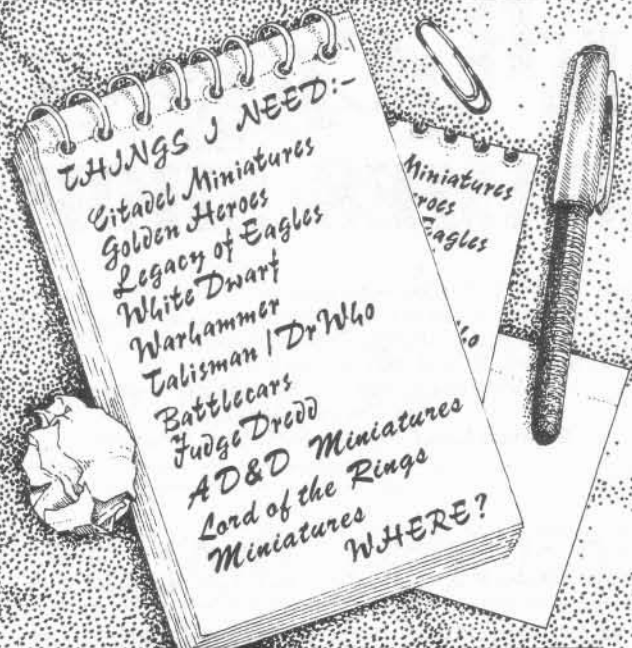 THINGS I NEED:-
Citadel Miniatures
Golden Heroes
Legacy of Eagles
White Dwarf
Warhammer
Talisman | Dr Who
Battlecars
Judge Dredd
AD&D Miniatures
Lord of the Rings
Miniatures
WHERE?
Miniatures
roes
Eagles